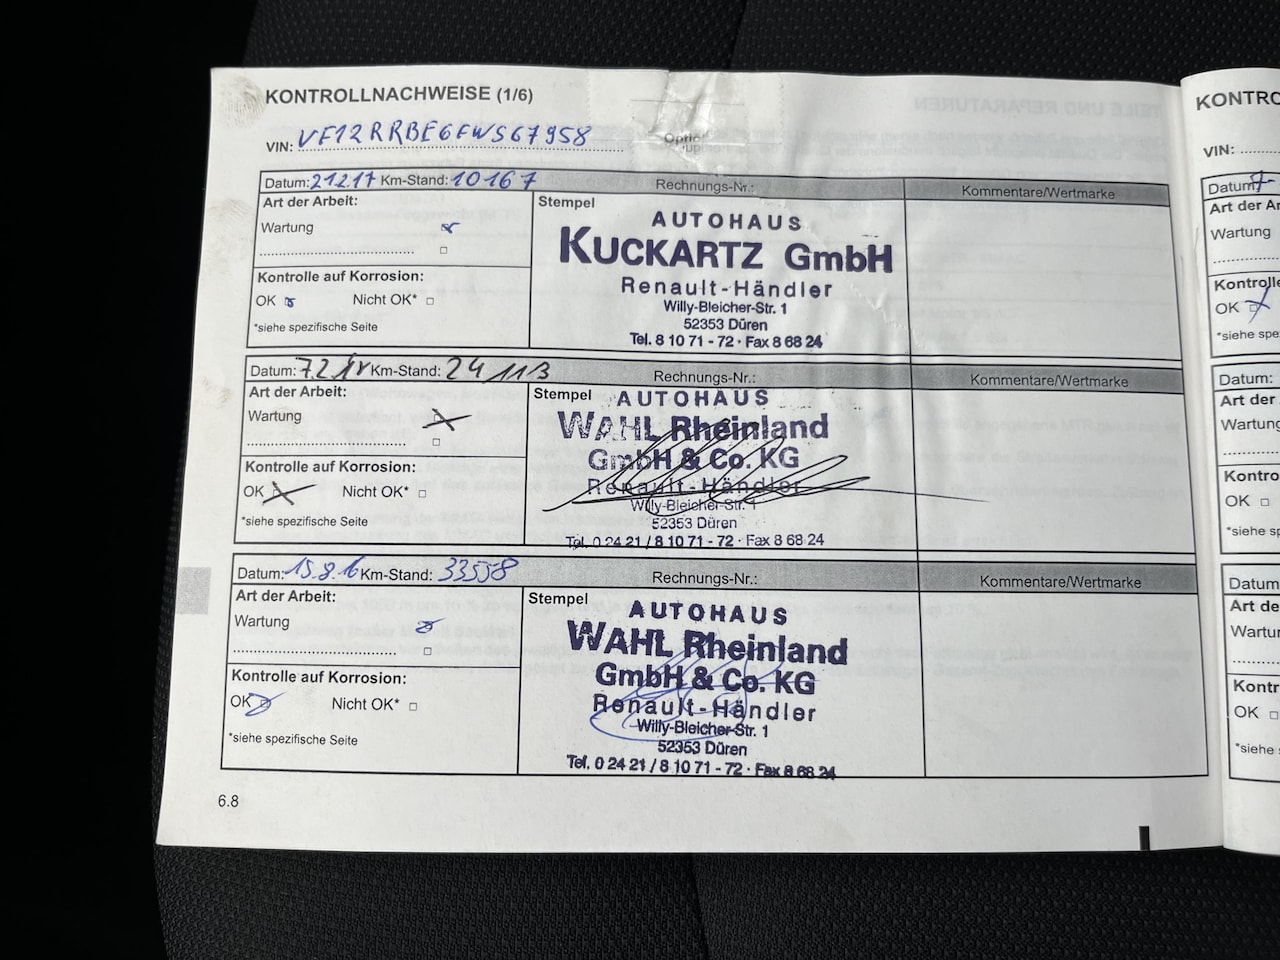 KONTROLLNACHWEISE (1/6)
VIN: VF12RRBE6FWS67958
Datum: 21217 Km-Stand: 10167 Rechnungs-Nr.: Kommentare/Wertmarke
Art der Arbeit:
Wartung
Kontrolle auf Korrosion:
OK Nicht OK*
*siehe spezifische Seite
Stempel
AUTOHAUS
KUCKARTZ GmbH
Renault-Händler
Willy-Bleicher-Str. 1
52353 Düren
Tel. 8 10 71 - 72 · Fax 8 68 24
Datum: Km-Stand: 24113 Rechnungs-Nr.: Kommentare/Wertmarke
Art der Arbeit:
Wartung
Kontrolle auf Korrosion:
OK Nicht OK*
*siehe spezifische Seite
Stempel
AUTOHAUS
WAHL Rheinland
GmbH & Co. KG
Renault-Händler
Willy-Bleicher-Str. 1
52353 Düren
Tel. 0 24 21 / 8 10 71 - 72 · Fax 8 68 24
Datum: 15.8.16 Km-Stand: 33558 Rechnungs-Nr.: Kommentare/Wertmarke
Art der Arbeit:
Wartung
Kontrolle auf Korrosion:
OK Nicht OK*
*siehe spezifische Seite
Stempel
AUTOHAUS
WAHL Rheinland
GmbH & Co. KG
Renault-Händler
Willy-Bleicher-Str. 1
52353 Düren
Tel. 0 24 21 / 8 10 71 - 72 · Fax 8 68 24
6.8
KONTRO
VIN:
Datum:
Art der Ar
Wartung
Kontrolle
OK
*siehe spe
Datum:
Art der A
Wartung
Kontro
OK
*siehe sp
Datum
Art de
Wartu
Kontr
OK
*siehe